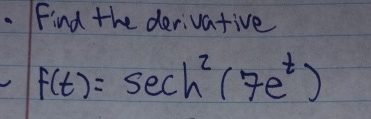 . Find the derivative
- f(t) = sech²(7eᵗ)